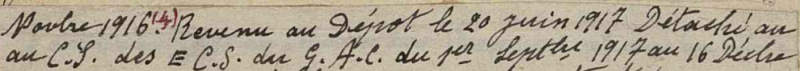 Novbre 1916 (4) Revenu au Dépot le 20 juin 1917 Détaché au
au C.S. des E C.S. du G.A.C. du 1er Septbre 1917 au 16 Décbre